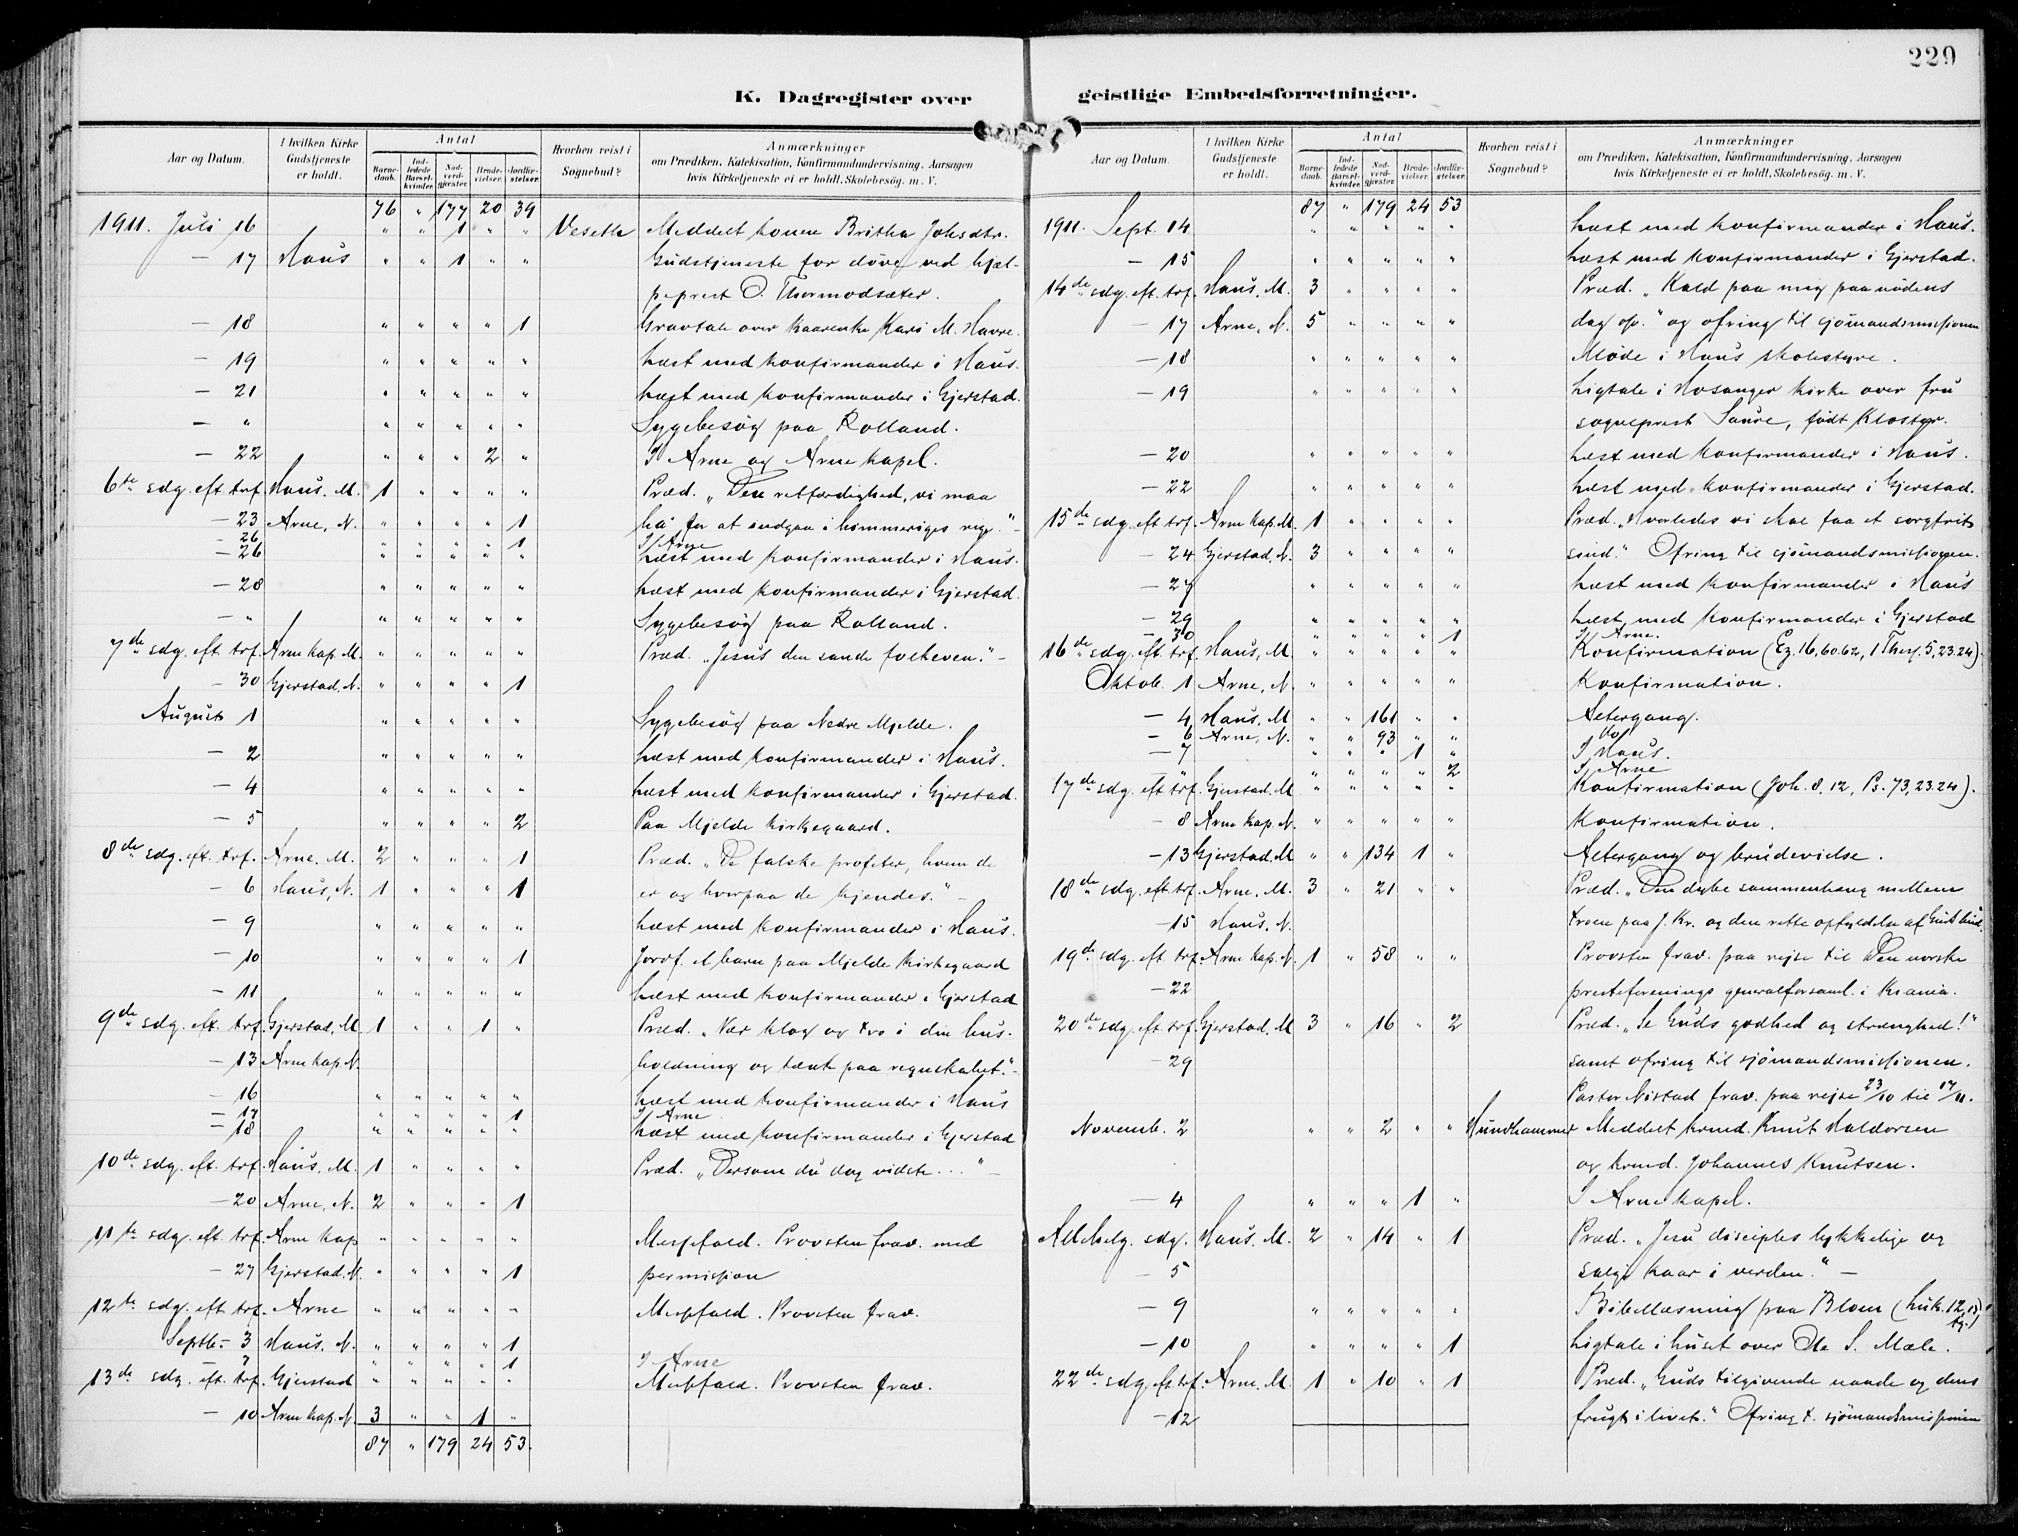 229
K. Dagregister over geistlige Embedsforretninger.
Aar og Datum. I hvilken Kirke Gudstjeneste er holdt. Antal Barnedaab. Indledede Barselkvinder. Nadverdgjester. Brudevielser. Jordfæstelser. Hvorhen reist i Sognebud? Anmærkninger om Prædiken, Katekisation, Konfirmandundervisning, Aarsagen hvis Kirketjeneste ei er holdt, Skolebesøg, m. V.
76 " 177 20 39
1911. Juli 16 " " 1 " " Veseth Meddelt konen Britha Johsdtr.
— 17 Haus " " 1 " " Gudstjeneste for døve ved hjæl-
peprest O. Thormodsæter.
— 18 " " " " 1 Gravtale over kaarenke Kari M. Havre.
— 19 " " " " " Læst med konfirmander i Haus.
— 21 " " " " " Læst med konfirmander i Gjerstad.
— " " " " " " Sygebesøg paa Rolland.
— 22 " " " 2 " I Arne og Arne kapel.
6te sdg. eft. trf. Haus. M. 1 " " " " Præd. „Den retfærdighed, vi maa
— 23 Arne, N. " " " " 1 ha for at indgaa i himmeriges rige." –
— 26 " " " " 1 I Arne
— 26 " " " " " Læst med konfirmander i Haus.
— 28 " " " " " Læst med konfirmander i Gjerstad.
— " " " " " " Sygebesøg paa Rolland.
7de sdg. eft. trf. Arne kap. M. " " " " " Præd. „Jesus den sande folkeven." –
— 30 Gjerstad, N. " " " " 1
August 1 " " " " " Sygebesøg paa Nedre Mjelde.
— 2 " " " " " Læst med konfirmander i Haus.
— 4 " " " " " Læst med konfirmander i Gjerstad.
— 5 " " " " 2 Paa Mjelde kirkegaard.
8de sdg. eft. trf. Arne, M. 2 " " " 1 Præd. „De falske profeter, hvem de
— 6 Haus, N. 1 " " " 1 er og hvorpaa de kjendes." –
— 9 " " " " " Læst med konfirmander i Haus.
— 10 " " " " 1 Jordf. et barn paa Mjelde kirkegaard
— 11 " " " " " Læst med konfirmander i Gjerstad
9de sdg. eft. trf. Gjerstad, M. 1 " " 1 " Præd. „Vær klog og tro i din hus-
— 13 Arne kap. N. holdning og tænk paa regnskabet." –
— 16 " " " " " Læst med konfirmander i Haus
— 17 " " " " 1 I Arne
— 18 " " " " " Læst med konfirmander i Gjerstad
10de sdg. eft. trf. Haus, M. 1 " " " " Præd. „Dersom du dog vidste..." –
— 20 Arne, N. 2 " " " 1
11te sdg. eft. trf. Arne kap " " " " " Messefald. Provsten frav. med
— 27 Gjerstad. N. " " " " 1 permission
12te sdg. eft. trf. Arne " " " " " Messefald. Provsten frav.
Septb. – 3 Haus. N. " " " " 1
— 7 " " " " 1 I Arne
13de sdg. eft. trf. Gjerstad " " " " " Messefald. Provsten frav.
— 10 Arne kap. N. 3 " " 1 "
87 " 179 24 53.
Aar og Datum. I hvilken Kirke Gudstjeneste er holdt. Antal Barnedaab. Indledede Barselkvinder. Nadverdgjester. Brudevielser. Jordfæstelser. Hvorhen reist i Sognebud? Anmærkninger om Prædiken, Katekisation, Konfirmandundervisning, Aarsagen hvis Kirketjeneste ei er holdt, Skolebesøg, m. V.
87 " 179 24 53
1911. Sept. 14 " " " " " Læst med konfirmander i Haus.
— 15 " " " " " Læst med konfirmander i Gjerstad.
14de sdg. eft. trf. Haus, M. 3 " " " " Præd. „Kald paa mig paa nødens
— 17 Arne, N. 5 " " " " dag osv." og ofring til sjømandsmissionen
— 18 " " " " " Møde i Haus skolestyre.
— 19 " " " " " Ligtale i Hosanger kirke over fru
sogneprest Saure, født Kloster.
— 20 " " " " " Læst med konfirmander i Haus.
— 22 " " " " " Læst med konfirmander i Gjerstad.
15de sdg. eft. trf. Arne kap. M. 1 " " " " Præd. „Hvorledes vi skal faa et sorgfrit
— 24 Gjerstad, N. 3 " " " " sind." Ofring til sjømandsmissionen.
— 27 " " " " " Læst med konfirmander i Haus
— 29 " " " " " Læst med konfirmander i Gjerstad
— 30 " " " " 1 I Arne.
16de sdg. eft. trf. Haus, M. " " " " " Konfirmation (Ez. 16,60.62, 1 Thess. 5,23.24).
Oktob. 1 Arne, N. " " " " " Konfirmation.
— 4 Haus. M " " 161 " " Altergang.
— 6 Arne, N. " " 93 " " do
— 7 " " " 1 " I Haus.
" " " " 2 I Arne
17de sdg. eft. trf. Gjerstad. M " " " " " Konfirmation (Joh. 8,12, Ps. 73,23.24).
— 8 Arne kap. N. " " " " " Konfirmation.
— 13 Gjerstad. M " " 134 1 " Altergang og brudevielse.
18de sdg. eft. trf. Arne, M. 3 " 21 " " Præd. „Den dybe sammenhæng mellem
— 15 Haus, N. troen paa J. Kr. og den rette opfyldelse af Guds bud."
19de sdg. eft. trf. Arne kap. N. 1 " 58 " " Provsten frav. paa rejse til Den norske
— 22 presteforenings generalforsaml. i Krania.
20de sdg. eft. trf. Gjerstad. M 3 " 16 " 2 Præd. „Se Guds godhed og strænghed!"
— 29 samt ofring til sjømandsmissionen.
Pastor Nistad frav. paa rejse 23/10 til 17/11.
Novemb. 2 " " 2 " " Hundhammer Meddelt krmd. Knut Haldorsen
og krmd. Johannes Knutsen.
— 4 " " " 1 " I Arne kapel.
Allehelg. sdg. Haus. M. 2 " 14 " 1 Præd. „Jesu disciples lykkelige og
— 5 salige kaar i verden." –
— 9 " " " " " Bibellæsning paa Blom (Luk. 12,
— 10 " " " " 1 Ligtale i huset over Ole S. Mæle.
22de sdg. eft. trf. Arne, M. 1 " 10 " 1 Præd. „Guds tilgivende naade og dens
— 12 frugt i livet." Ofring t. sjømandsmissionen